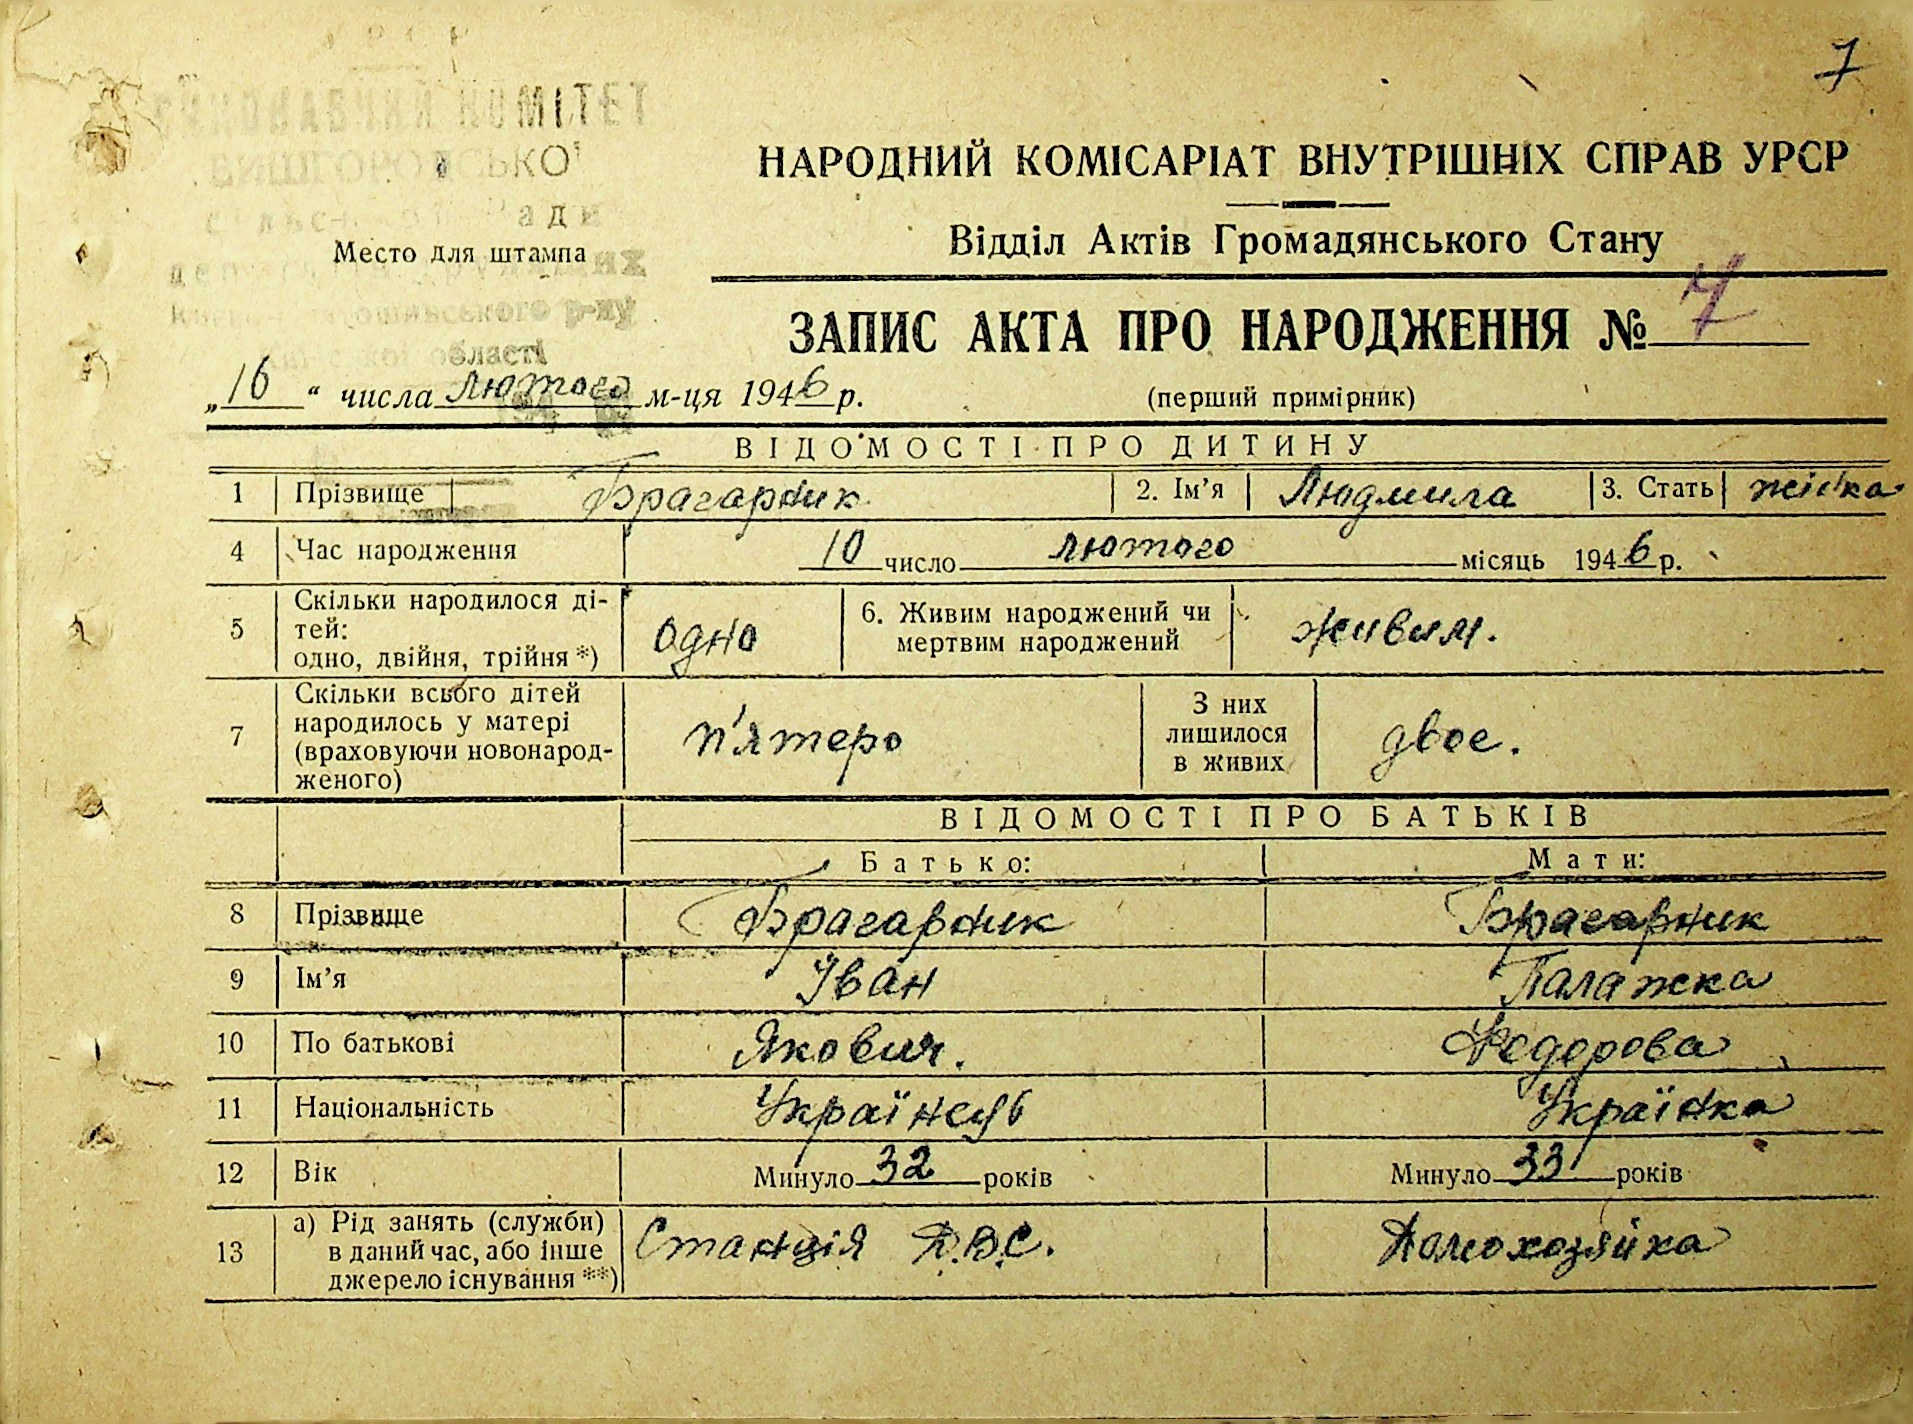 7
КОМІТЕТ
НАРОДНИЙ КОМІСАРІАТ ВНУТРІШНІХ СПРАВ УРСР
Відділ Актів Громадянського Стану
Место для штампа
р-ну
області
ЗАПИС АКТА ПРО НАРОДЖЕННЯ № 7
„16“ числа лютого м-ця 1946 р.
(перший примірник)
ВІДОМОСТІ ПРО ДИТИНУ
1 Прізвище Брагарник 2. Ім’я Людмила 3. Стать жінка
4 Час народження 10 число лютого місяць 1946 р.
5 Скільки народилося ді-
тей:
одно, двійня, трійня *) одно 6. Живим народжений чи
мертвим народжений живим.
7 Скільки всього дітей
народилось у матері
(враховуючи новонарод-
женого) п'ятеро З них
лишилося
в живих двое.
ВІДОМОСТІ ПРО БАТЬКІВ
Батько: Мати:
8 Прізвище Брагарник Брагарник
9 Ім’я Іван Палажка
10 По батькові Якович. Федорова
11 Національність Українець Українка
12 Вік Минуло 32 років Минуло 33 років
13 а) Рід занять (служби)
в даний час, або інше
джерело існування **) Станція Д.В.С. Домохозяйка